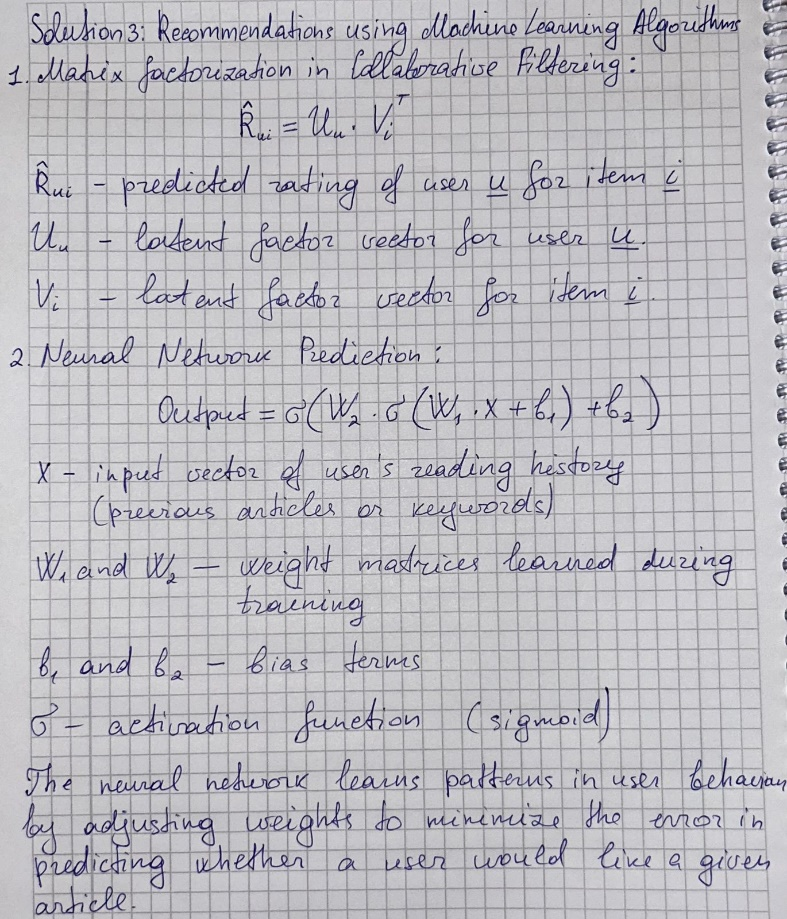 Solution 3: Recommendations using Machine Learning Algorithms
1. Matrix factorization in Collaborative Filtering:
R̂ᵤᵢ = Uᵤ · Vᵢᵀ
R̂ᵤᵢ – predicted rating of user u for item i
Uᵤ – latent factor vector for user u.
Vᵢ – latent factor vector for item i.
2. Neural Network Prediction:
Output = σ(W₂ · σ(W₁ · X + b₁) + b₂)
X – input vector of user's reading history
(previous articles or keywords)
W₁ and W₂ – weight matrices learned during
training
b₁ and b₂ – bias terms
σ – activation function (sigmoid)
The neural network learns patterns in user behavior
by adjusting weights to minimize the error in
predicting whether a user would like a given
article.